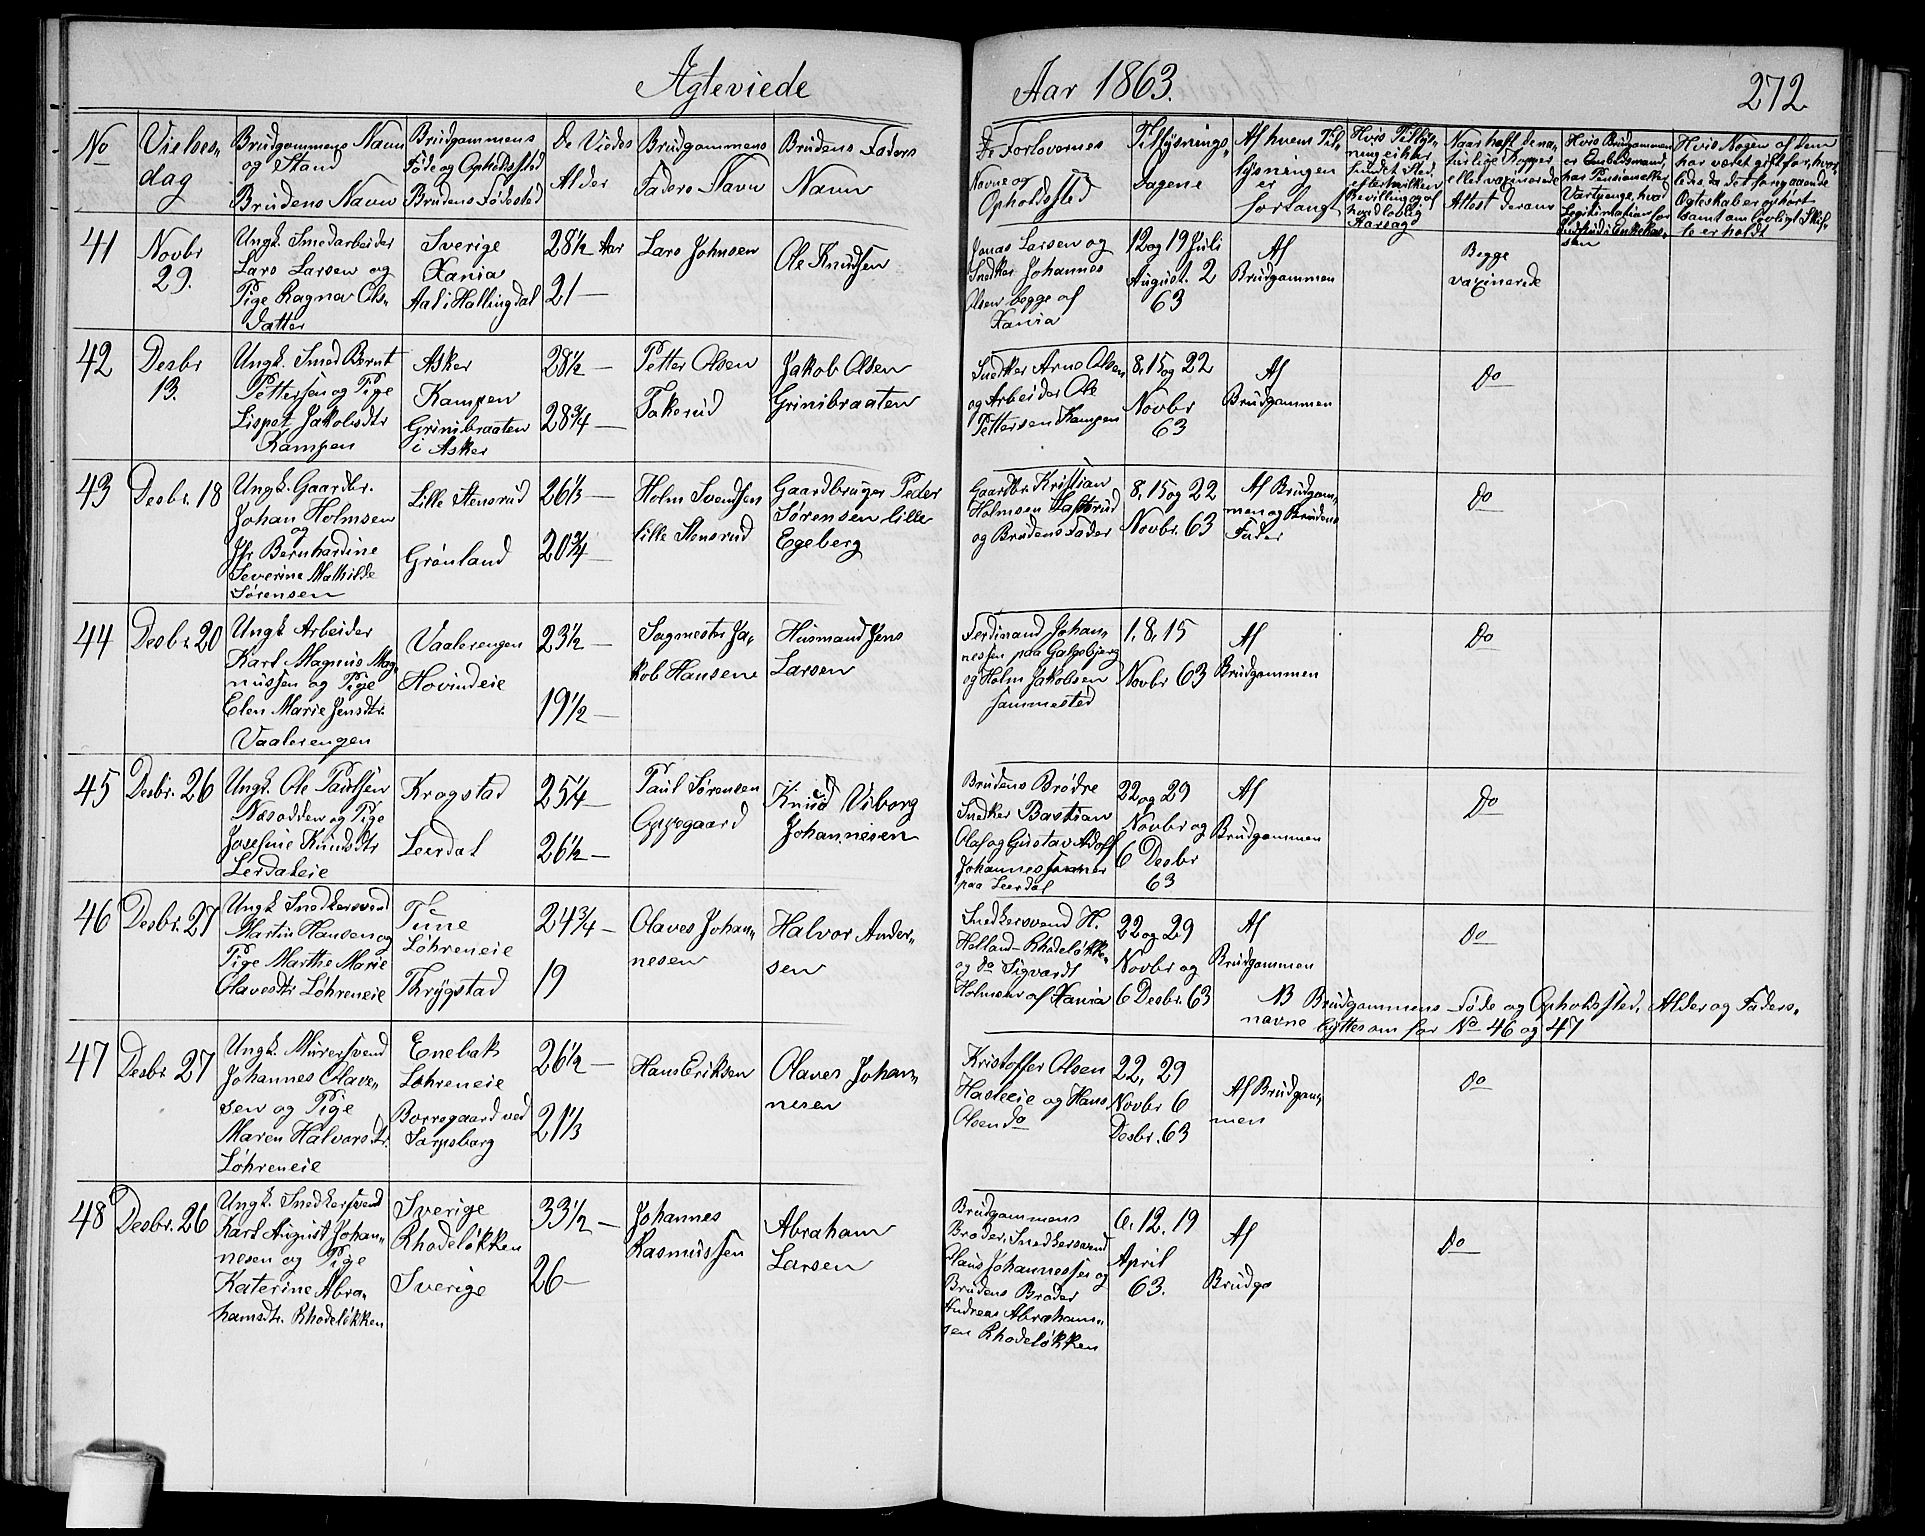 Ægteviede
Aar 1863.
272
No
Vielses-
dag
Brudgommens Navn
og Stand
Brudens Navn
Brudgommens
Føde og Opholdssted
Brudens Fødested
De Viedes
Alder
Brudgommens
Faders Navn
Brudens Faders
Navn
De Forloveres
Navne og
Opholdssted
Tillysnings-
Dagene
Af hvem Til-
lysningen
er
forlangt
Hvis Tillys-
ning ei har
fundet Sted,
efter hvilken
Bevilling og af
hvad lovlig
Aarsag
Naar haft de na-
turlige Kopper
eller vaxinerede
Attest derom
Hvis Brudgommen
er Embedsmand,
har Pension eller
Vartpenge, hvad
Legitimation for
Indskud i Enkekas-
sen
Hvis Nogen af dem
har været gift før, hvor-
ledes da det foregaaende
Ægteskab er ophørt
samt om lovligt Skif-
te er holdt
41
Novbr
29.
Ungk. Smedarbeider
Lars Larsen og
Pige Ragna Ols-
datter
Sverige
Xania
Aal i Hallingdal
28½ Aar
21 —
Lars Johnsen
Ole Knudsen
Jonas Larsen og
Snedker Johannes
Olsen begge af
Xania
12 og 19 Juli
August. 2
63
Af
Brudgommen
Begge
vaxinerede
42
Desbr
13.
Ungk. Smed Bernt
Pettersen og Pige
Lispet Jakobsdtr
Kampen
Asker
Kampen
Grinibraaten
i Asker
28½ —
28¾ —
Petter Olsen
Takerud
Jakob Olsen
Grinibraaten
Snedker Arne Olsen
og Arbeider Ole
Pettersen Kampen
8, 15 og 22
Novbr
63
Af
Brudgommen
Do
43
Desbr. 18
Ungk. Gaardbr.
Johan Holmsen
og
Jfr Bernhardine
Severine Mathilde
Sørensen
Lille Stensrud
Grønland
26⅓ —
20¾ —
Holm Svendsen
lille Stensrud
Gaardbruger Peder
Sørensen lille
Egeberg
Gaardbr. Kristian
Holmsen
og Brudens Fader
8, 15 og 22
Novbr. 63
Af Brudgom-
men og Brudens
Fader
Do
44
Desbr 20
Ungk. Arbeider
Karl Magnus Mag-
nussen og Pige
Elen Marie Jensdtr.
Vaalerengen
Vaalerengen
Hovindeie
23½ —
19½ —
Sagmester Ja-
kob Hansen
Husmand Jens
Larsen
Ferdinand Johan-
nessen paa Galgebjerg
og Holm Jakobsen
sammested
1, 8, 15
Novbr 63
Af
Brudgommen
Do
45
Desbr. 26
Ungk. Ole Paulsen
Næsodden og Pige
Josefine Knudsdtr
Lerdaleie
Krogstad
Leerdal
25¼ —
26½ —
Paul Sørensen
Oppegaard
Knud Viborg
Johannesen
Brudens Brødre
Snedker Bastian
Olaf og Gustav Adolf
Johannessenner
paa Leerdal
22 og 29
Novbr og
6 Desbr
63
Af
Brudgommen
Do
46
Desbr. 27
Ungk. Snedkersvend
Martin Hansen og
Pige Marthe Marie
Olavesdtr Løhreneie
Tune
Løhreneie
Thrygstad
24¾ —
19
Olaves Johan-
nesen
Halvor Ander-
sen
Snedkersvend H.
Holland Rhodeløkke-
og do Sigvardt
Holmsen af Xania
22 og 29
Novbr og
6 Desbr. 63
Af
Brudgommen
Do
NB Brudgommens Føde og Opholdssted, Alder og Faders-
navne byttes om for No 46 og 47
47
Desbr 27
Ungk. Murersvend
Johannes Olave-
sen og Pige
Maren Halvorsdtr.
Løhreneie
Enebak
Løhreneie
Borregaard ved
Sarpsborg
26½ —
21⅓
Hans Eriksen
Olaves Johan-
nesen
Kristoffer Olsen
Hasleeie og Hans
Olsen do
22, 29
Novbr 6
Desbr. 63
Af Brudgom-
men
Do
48
Desbr. 26
Ungk. Snedkersvend
Karl August Johan-
nesen og Pige
Katerine Abra-
hamsdtr. Rhodeløkken
Sverige
Rhodeløkken
Sverige
33½ —
26 —
Johannes
Rasmussen
Abraham
Larsen
Brudgommens
Broder, Snedkersvend
Claus Johannessen og
Brudens Broder
Andreas Abraham-
sen Rhodeløkken
6. 12. 19
April
63.
Af
Brudgo
Do